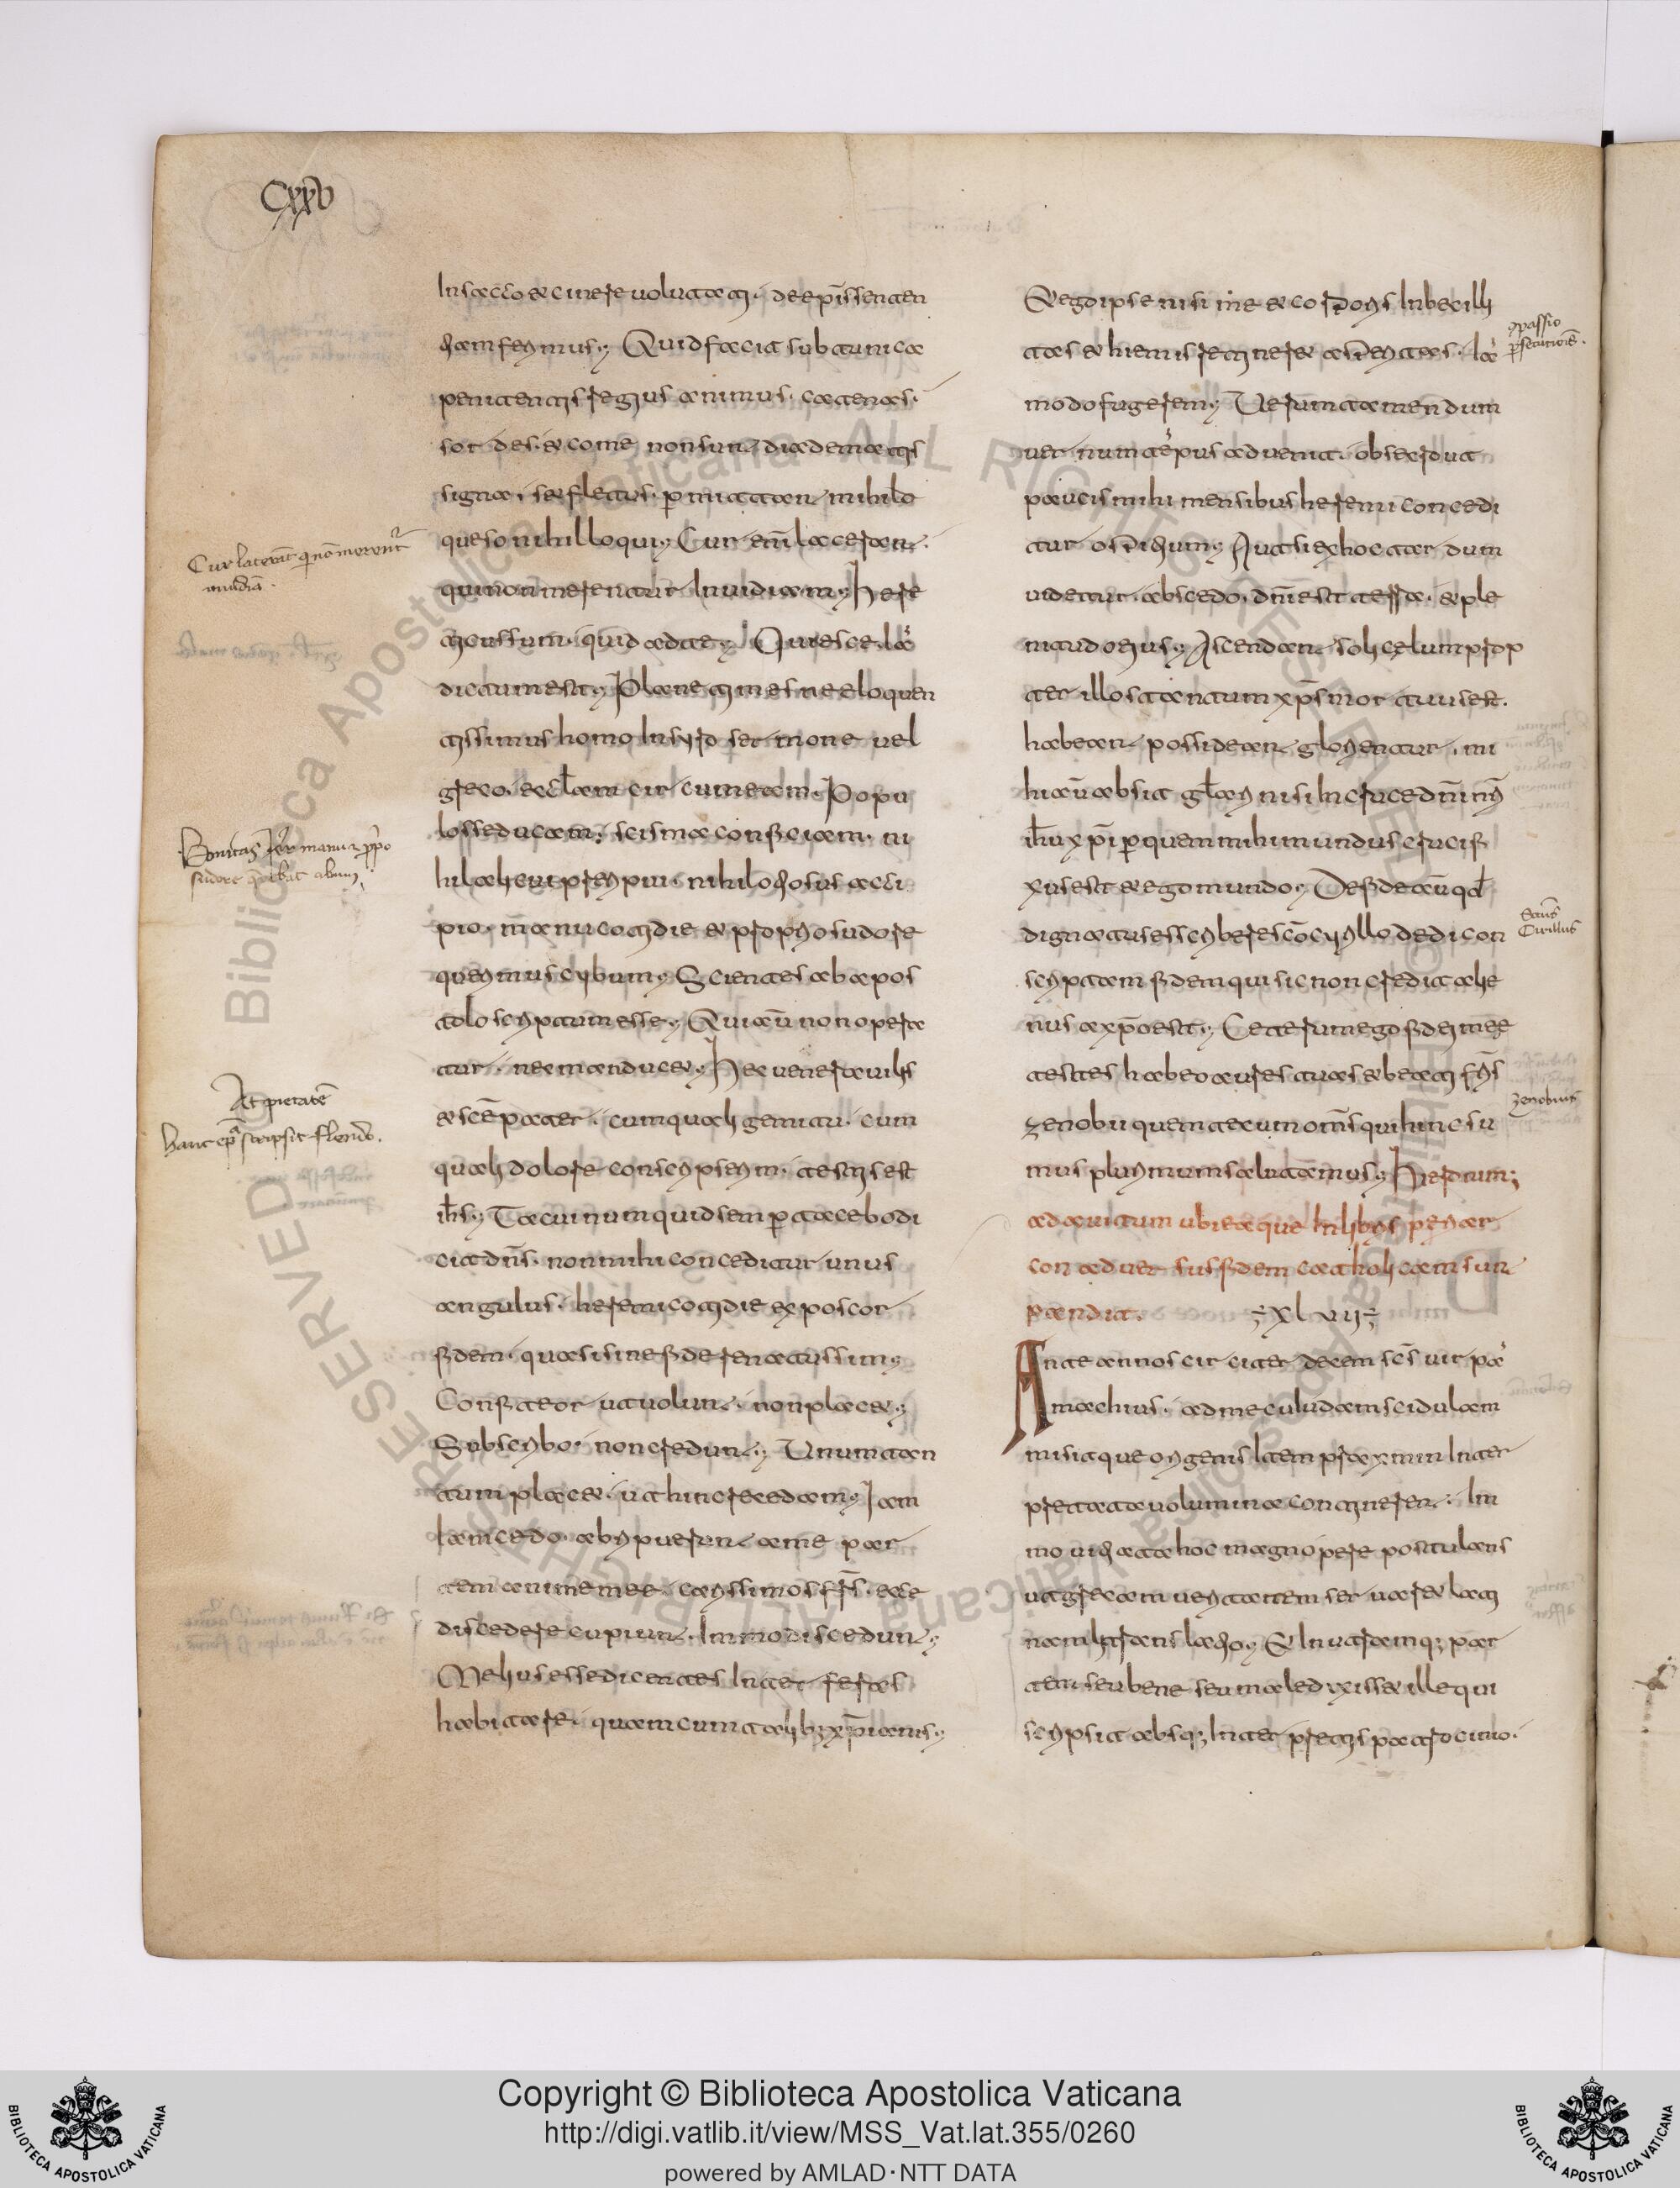 Cxxv
In sacco et cinere uolutati. de ep̄is senten
tiam ferimus. Quid facit sub tunica
penitentis regius animus. catenas.
sordes. et come non sunt diadematis
signa. set fletus. p̄mittant mihi do
queso nihil loqui. Cur eni lacerant.
qui non merentur Inuidiam. Here
ticus sum. quid ad te. Quiesce. Iā
dictum est. Plane times ne eloquen
tissimus homo In syro sermone uel
greco. eccl̄am circumeam. Popu
los seducam. scisma conficiam. ni
hil alicui preripui. nihil otiosus acci
pio. manu cotidie et proprio sudore
querimus cybum. Scientes ab apos
tolo scriptum esse. Qui aū non opera
tur. nec manducet. Hec uenerauilis
et scē pater. cum quali gemitu. cum
quali dolore conscripserim. testis est
ih̄s. Tacui numquid semp̄ tacebo di
cit dn̄s. non mihi conceditur unus
angulus. heremi cotidie exposcor
fidem. quasi sine fide renatus sim.
Confiteor ut uolunt. non placet.
Subscribo. non credunt. Unum tan
tum placet. ut hinc recedam. Iam
Iam cedo. abripuerunt a me par
tem anime mee. carissimos fr̄s. ecce
discedere cupiunt. Immo discedunt.
Melius esse dicentes Inter feras
habitare. quam cum talib; xp̄ianis.
Et ego ipse nisi me et corporis Inbecilli
tas et hiemis retineret asperitas. Iā
modo fugerem. Uerumtamen dum
uernum tēpus adueniat. obsecro ut
paucis mihi mensibus heremi concedi
tur ospitium. Aut si ex hoc tardum
uidetur. abscedo. dn̄i est terra. et ple
nitudo eius. Ascendant soli celum prop
ter illos tantum xp̄s mortuus est.
habeant possideant glorientur. mi
hi aū absit gl̄ari nisi In cruce dn̄i nr̄i
ih̄u xp̄i p̄ quem mihi mundus crucifi
xus est et ego mundo. De fide aū qd̄
dignatus es scribere scō cyrillo dedi con
scriptam fidem qui sic non credit alie
nus a xp̄o est. Ceterum ego fidei mee
testes habeo aures tuas et beati fr̄is
zenobii quem tecum om̄s qui hinc su
mus plurimum salutamus. Hieronim;
ad auitum ubi eaque In libris periar
con aduersus fidem catholicam sunt
pandit. xlvij
Ante annos circiter decem scs̄ uir pā
machius. ad me cuiusdam scidulam
misit que origenis Item proximi Inter
pretata uolumina contineret. Im
mo uitiata hoc magnopere postulans
ut grecam ueritatem seruaret lati
na translatio. Et In utramq; par
tem seu bene seu male dixisset ille qui
scripsit absq; Interpretis patrocinio.
Cur lacerāt q̄ nō merent᷑
inuidiā.
hanc ep̄lā scripsit flendo.
Scūs
Cirillus
zenobius
Copyright © Biblioteca Apostolica Vaticana
http://digi.vatlib.it/view/MSS_Vat.lat.355/0260
powered by AMLAD·NTT DATA
BIBLIOTECA APOSTOLICA VATICANA
BIBLIOTECA APOSTOLICA VATICANA